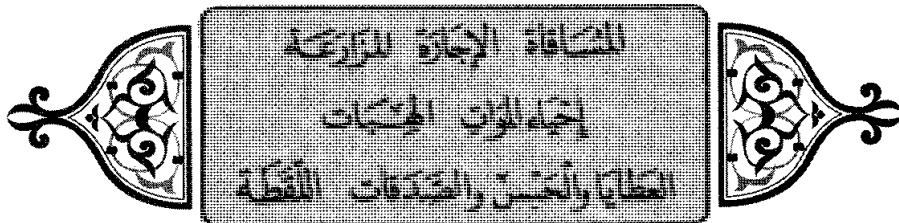 المسَاقاة الإجَارَة المزَارعَة
إحيَاء الموَات الهِبَات
العَطايَا والحَبْسْ والصَّدَقات اللُّقَطَة